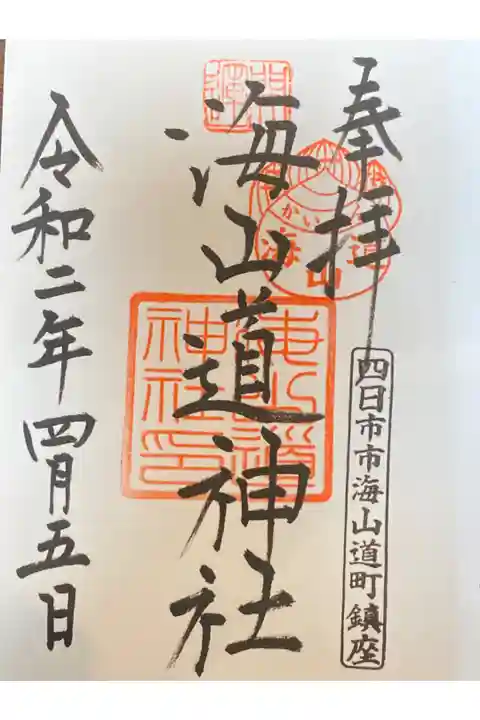 奉拝
四日市市海山道町鎮座
かい
海山道
海山道神社
海山道神社印
令和二年四月五日